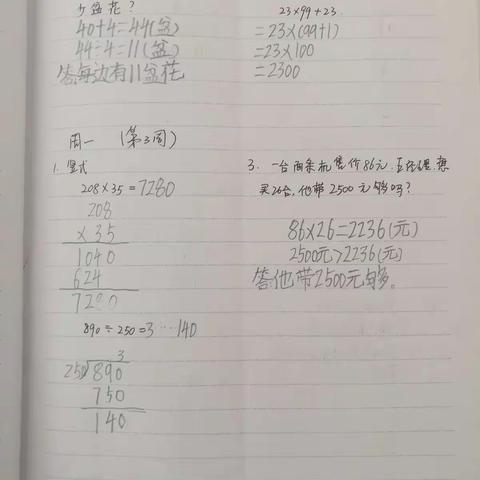 少盆花？
40+4=44(盆)
44÷4=11(盆)
答:每边有11盆花
23×99+23
=23×(99+1)
=23×100
=2300
周一 (第3周)
1. 竖式
208×35=7280
208
×35
1040
624
7280
890÷250=3……140
3
250 890
750
140
3. 一台 售价86元,
买26台,他带2500元够吗?
86×26=2236(元)
2500元>2236(元)
答:他带2500元够。